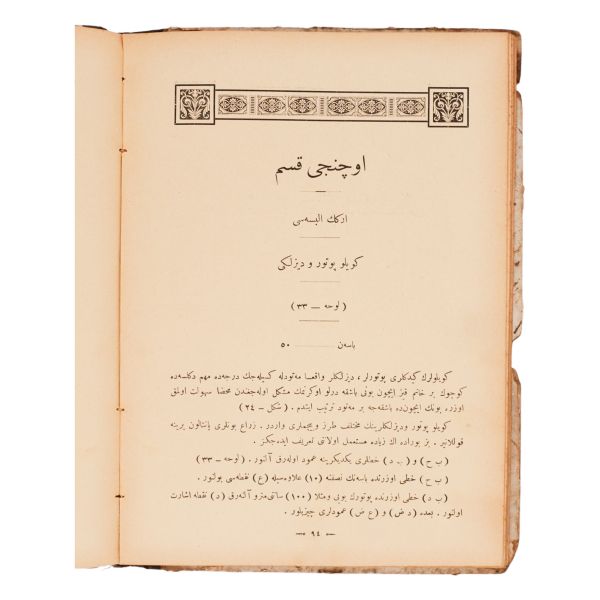 اوچنجی قسم
ارکك البسه‌سی
کویلو پوتور و دیزلکی
( لوحه — ۳۳ )
باسه‌ن ۵۰
کویلولرك کیدکلری پوتورلر ، دیزلکلر واقعا مه‌تودله کسیله‌جك درجه‌ده مهم دکلسه‌ده
کوچوك بر خانم قیز ایچون بونی باشقه درلو اوکرنمك مشکل اوله‌جغندن محضا سهولت اولمق
اوزره بونك ایچون‌ده باشقه‌جه بر مه‌تود ترتیب ایتدم . ( شکل — ۲٤ )
کویلو پوتور ودیزلکلرینك مختلف طرز وبیچملری واردر . زراع بونلری پانتالون یرینه
قوللانیر . بز بوراده اك زیاده مستعمل اولانی تعریف ایده‌جکز .
( ب ح ) و ( ب د ) خطلری یکدیکرینه عمود اوله‌رق آلنور . ( لوحه — ۳۳ )
( ب ح ) خطی اوزرنده باسه‌نك نصفنه ( ۱۰ ) علاوه‌سیله ( ع ) نقطه‌سی بولنور .
( ب د ) خطی اوزرنده پوتورك بویی ومثلا ( ۱۰۰ ) سانتی‌مترو آلنه‌رق ( د ) نقطه اشارت
اولنور . بعده ( د ض ) و ( ع ض ) عمودلری چیزیلور .
— ۹٤ —